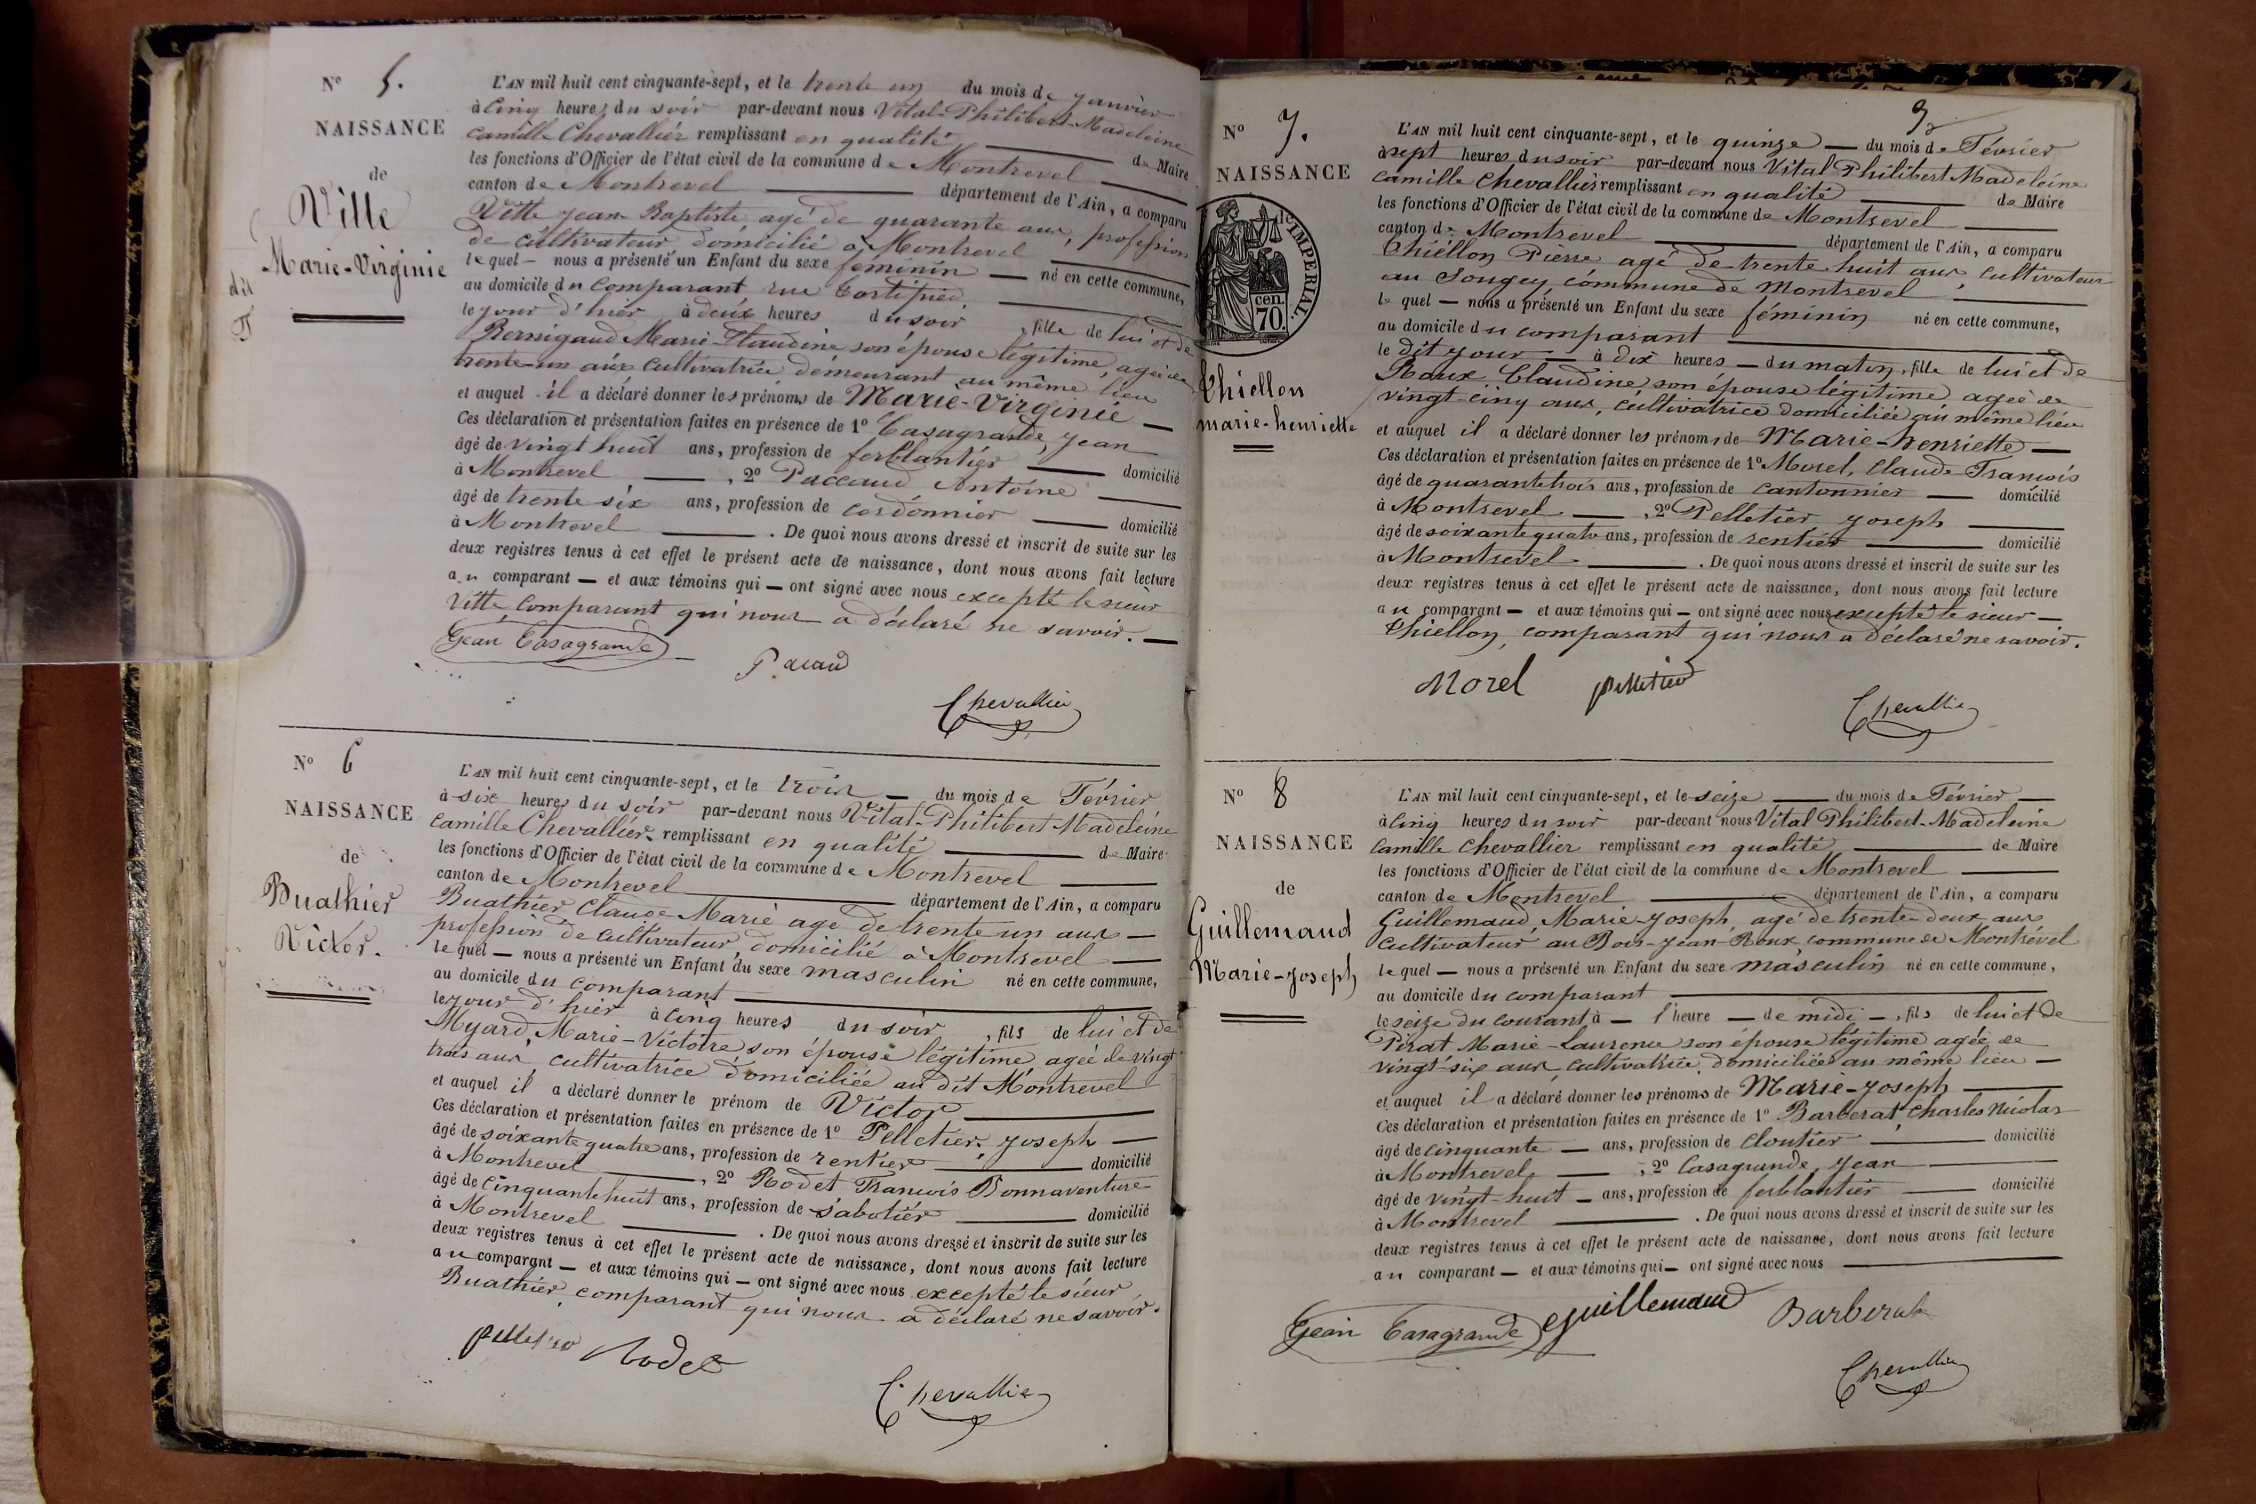 N° 5.
NAISSANCE
de
Vitte
Marie-Virginie
dit
T
L'AN mil huit cent cinquante-sept, et le trente un du mois de janvier
à cinq heures du soir par-devant nous Vital-Philibert-Madeleine
Camille Chevallier remplissant en qualité de Maire
les fonctions d'Officier de l'état civil de la commune de Montrevel
canton de Montrevel département de l'Ain, a comparu
Vitte Jean-Baptiste agé de quarante ans, profession
de cultivateur domicilié à Montrevel
lequel nous a présenté un Enfant du sexe féminin né en cette commune,
au domicile du comparant rue
le jour d'hier à deux heures du soir, fille de lui et de
Marie-Claudine son épouse légitime, agée de
trente-un ans cultivatrice demeurant au même lieu
et auquel il a déclaré donner les prénoms de Marie-Virginie
Ces déclaration et présentation faites en présence de 1° Casagrande, Jean
âgé de vingt huit ans, profession de ferblantier domicilié
à Montrevel, 2° Paccaud Antoine
âgé de trente six ans, profession de cordonnier domicilié
à Montrevel. De quoi nous avons dressé et inscrit de suite sur les
deux registres tenus à cet effet le présent acte de naissance, dont nous avons fait lecture
au comparant et aux témoins qui ont signé avec nous excepté le sieur
Vitte comparant qui nous a déclaré ne savoir.
Gean Casagrande
Pacaud
Chevallier
N° 6
NAISSANCE
de
Buathier
Victor.
L'AN mil huit cent cinquante-sept, et le trois du mois de Février
à six heures du soir par-devant nous Vital-Philibert-Madeleine
Camille Chevallier remplissant en qualité de Maire
les fonctions d'Officier de l'état civil de la commune de Montrevel
canton de Montrevel département de l'Ain, a comparu
Buathier Claude-Marie agé de trente un ans
profession de cultivateur, domicilié à Montrevel
lequel nous a présenté un Enfant du sexe masculin né en cette commune,
au domicile du comparant
le jour d'hier à cinq heures du soir, fils de lui et de
Myard, Marie-Victoire son épouse légitime agée de vingt
trois ans, cultivatrice domiciliée au dit Montrevel
et auquel il a déclaré donner le prénom de Victor
Ces déclaration et présentation faites en présence de 1° Pelletier, Joseph
âgé de soixante quatre ans, profession de rentier domicilié
à Montrevel, 2° Rodet François Bonnaventure
âgé de cinquante huit ans, profession de sabotier domicilié
à Montrevel. De quoi nous avons dressé et inscrit de suite sur les
deux registres tenus à cet effet le présent acte de naissance, dont nous avons fait lecture
au comparant et aux témoins qui ont signé avec nous excepté le sieur
Buathier, comparant qui nous a déclaré ne savoir.
Rodet
Chevallier
N° 7.
NAISSANCE
IMPERIAL.
70. cen.
Thiellon
marie-henriette
L'AN mil huit cent cinquante-sept, et le quinze du mois de Février
à sept heures du soir par-devant nous Vital Philibert Madeleine
Camille Chevallier remplissant en qualité de Maire
les fonctions d'Officier de l'état civil de la commune de Montrevel
canton de Montrevel département de l'Ain, a comparu
Thiéllon Pierre agé de trente huit ans, cultivateur
au Sougey, commune de Montrevel
le quel nous a présenté un Enfant du sexe féminin né en cette commune,
au domicile du comparant
le dit jour à dix heures du matin, fille de lui et de
Roux Claudine son épouse légitime agée de
vingt-cinq ans, cultivatrice domiciliée au même lieu
et auquel il a déclaré donner les prénoms de Marie-henriette
Ces déclaration et présentation faites en présence de 1° Morel, Claude François
âgé de quarante trois ans, profession de cantonnier domicilié
à Montrevel, 2° Pelletier Joseph
âgé de soixante quatre ans, profession de rentier domicilié
à Montrevel. De quoi nous avons dressé et inscrit de suite sur les
deux registres tenus à cet effet le présent acte de naissance, dont nous avons fait lecture
au comparant et aux témoins qui ont signé avec nous excepté le sieur
Thiellon, comparant qui nous a déclaré ne savoir.
Morel
Chevallier
N° 8
NAISSANCE
de
Guillemaud
Marie-Joseph
L'AN mil huit cent cinquante-sept, et le seize du mois de Février
à cinq heures du soir par-devant nous Vital Philibert-Madeleine
Camille Chevallier remplissant en qualité de Maire
les fonctions d'Officier de l'état civil de la commune de Montrevel
canton de Montrevel département de l'Ain, a comparu
Guillemaud, Marie-Joseph, agé de trente-deux ans
cultivateur au Bois-Jean-Roux commune de Montrevel
lequel nous a présenté un Enfant du sexe masculin né en cette commune,
au domicile du comparant
le seize du courant à l'heure de midi, fils de lui et de
Pirat Marie-Laurence son épouse légitime agée de
vingt-six ans, cultivatrice, domiciliée au même lieu
et auquel il a déclaré donner les prénoms de Marie-Joseph
Ces déclaration et présentation faites en présence de 1° Barberat, Charles Nicolas
âgé de cinquante ans, profession de cloutier domicilié
à Montrevel, 2° Casagrande, Jean
âgé de vingt-huit ans, profession de ferblantier domicilié
à Montrevel. De quoi nous avons dressé et inscrit de suite sur les
deux registres tenus à cet effet le présent acte de naissance, dont nous avons fait lecture
au comparant et aux témoins qui ont signé avec nous
Gean Casagrande Guillemaud Barberat
Chevallier